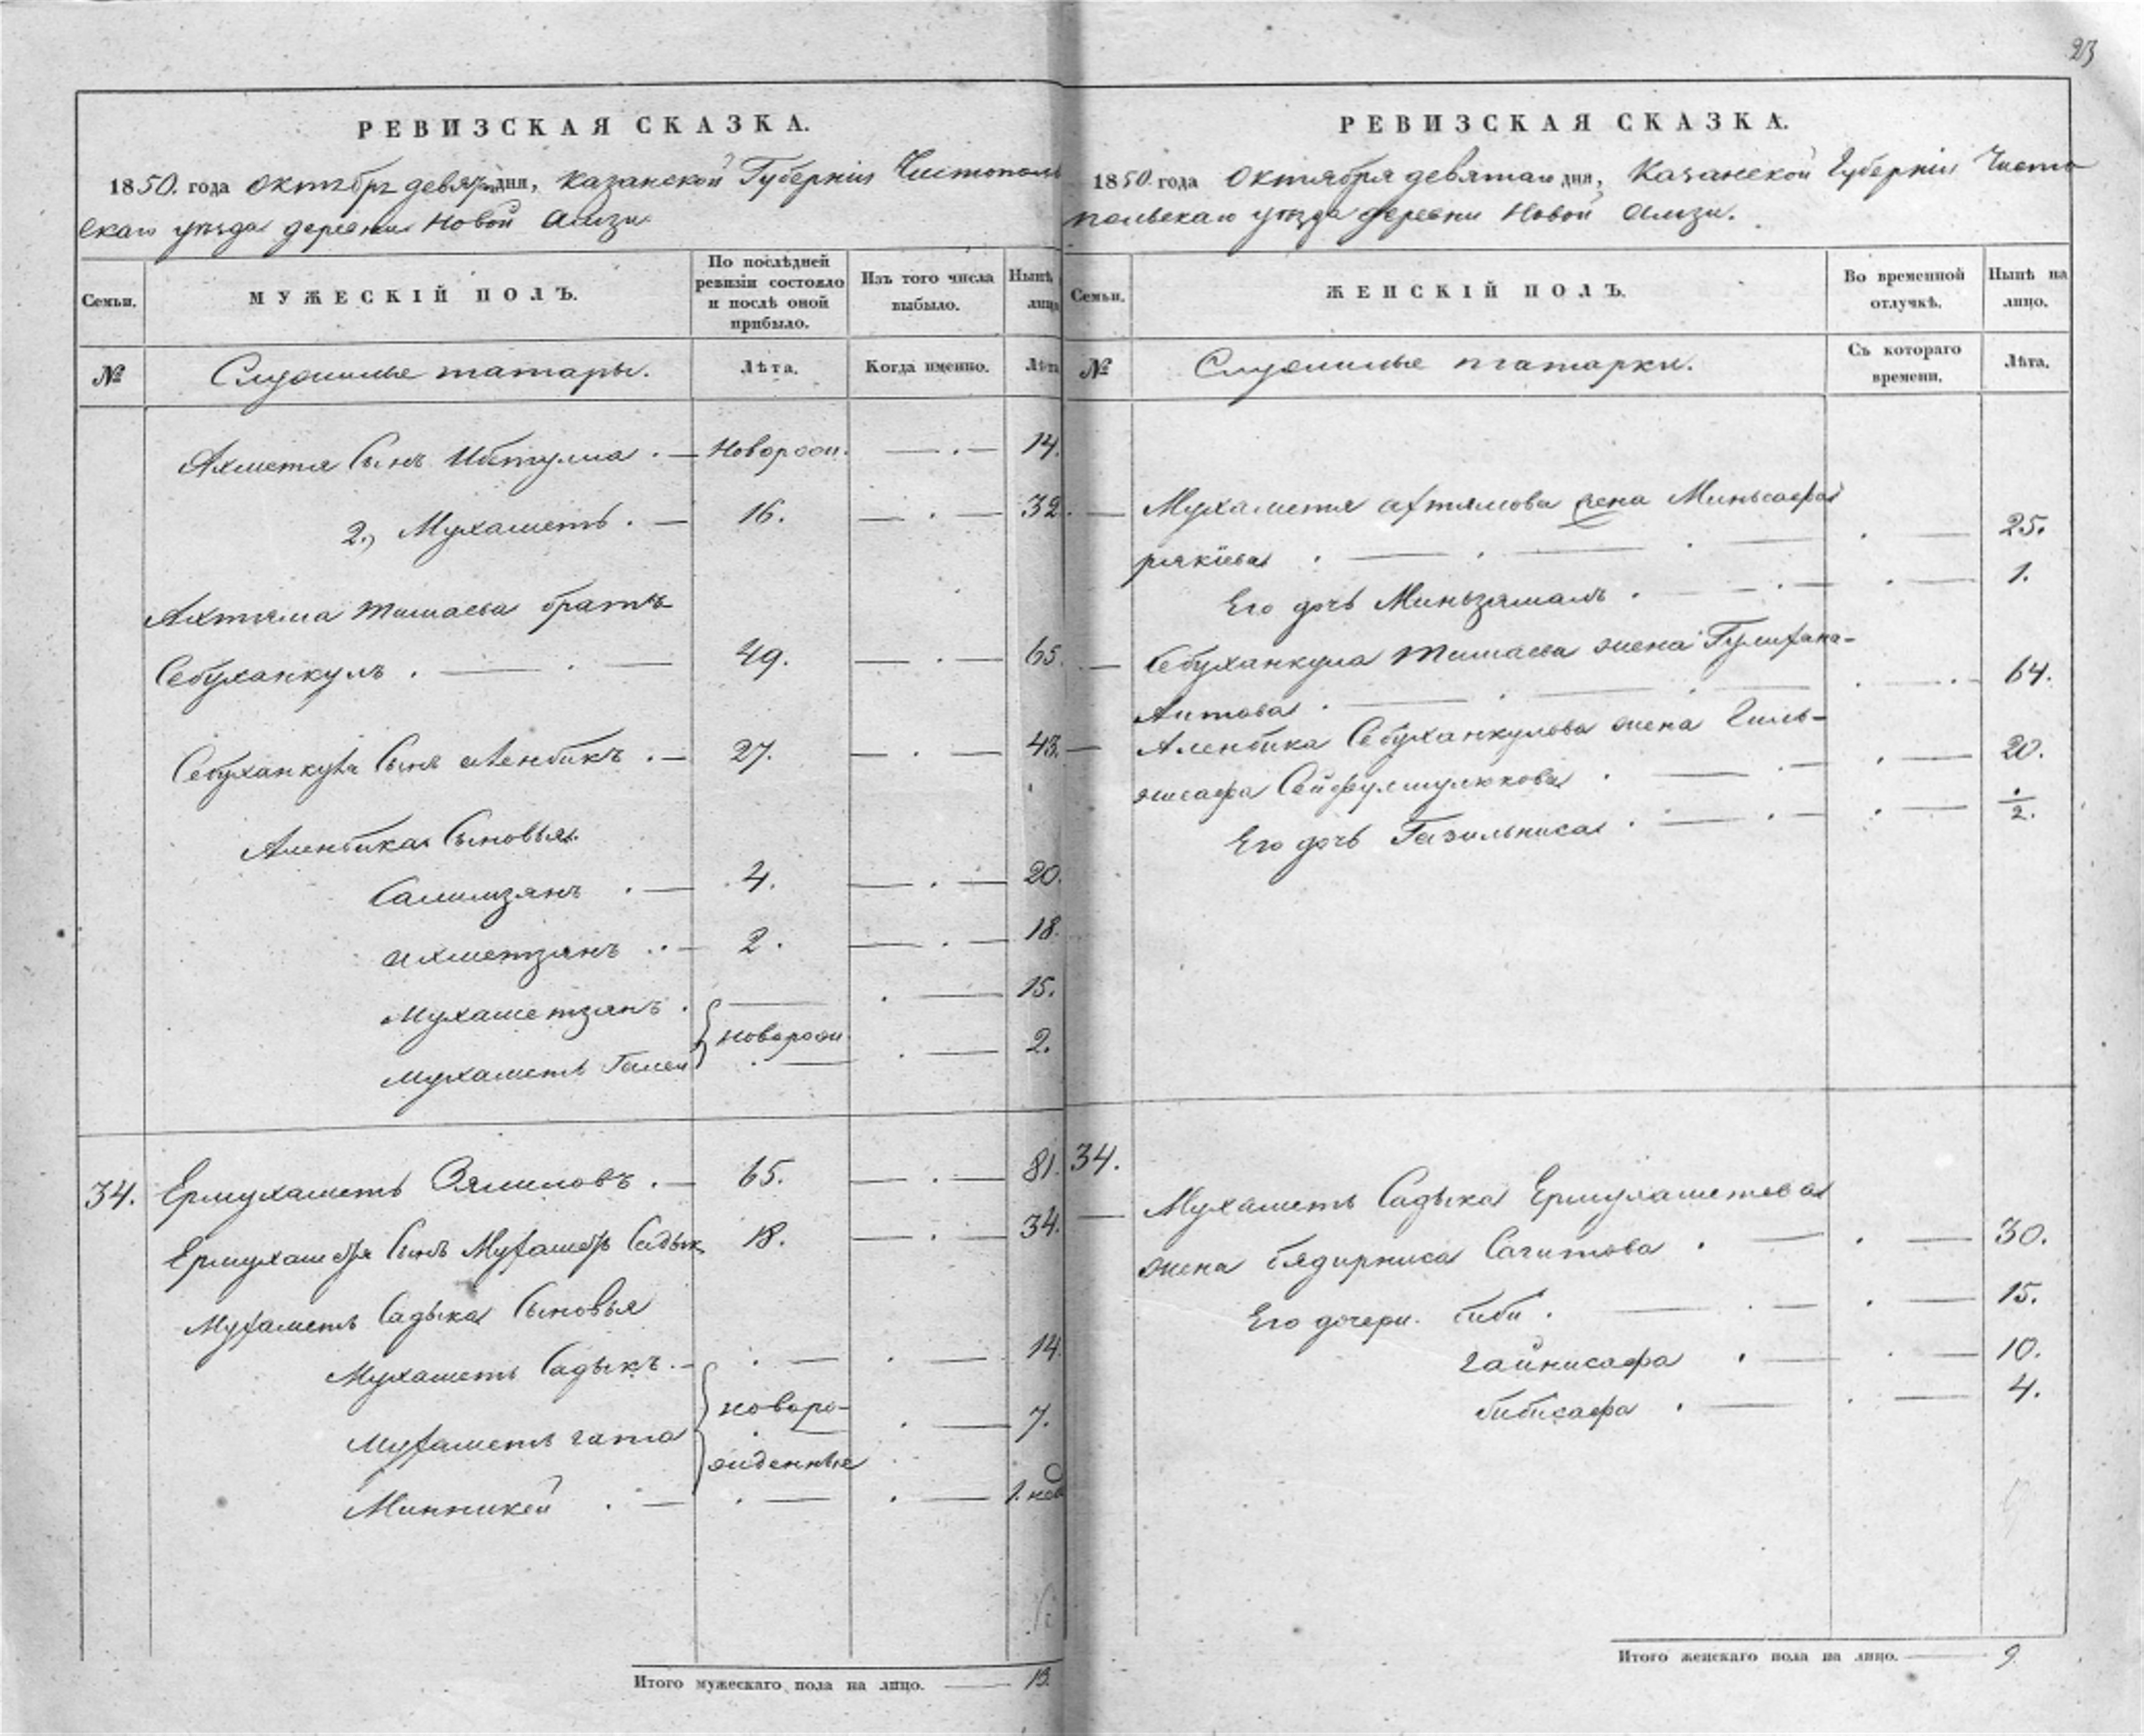 23
РЕВИЗСКАЯ СКАЗКА.
1850. года Октября девят дня, Казанской Губернии Чистополь
скаго уѣзда деревни Новой Амзи
Семьи.
МУЖЕСКІЙ ПОЛЪ.
По послѣдней ревизіи состояло и послѣ оной прибыло.
Изъ того числа выбыло.
Нынѣ лицо
№
Служилые татары.
Лѣта.
Когда именно.
Лѣта
Ахметя Сынъ Ибтума . — Новорож. — . — 14.
2, Мухаметъ . — 16. — . — 32.
Ахтяма Тимаева братъ
Себуханкулъ . — . — 49. — . — 65.
Себуханкула Сынъ Аленбикъ . — 27. — . — 43.
Аленбика Сыновья.
Салимзянъ . — 4. — . — 20.
Ахметзянъ . — 2. — . — 18.
Мухаметзянъ . — . — 15.
новорож.
Мухаметъ Галей . — . — 2.
34. Ермухаметъ Зямиловъ . — 65. — . — 81.
Ермухаметя Сынъ Мухаметъ Садык 18. — . — 34.
Мухаметъ Садыка Сыновья
Мухаметъ Садыкъ . — . — . — 14.
новоро-
Мухаметъ гата . — 7.
жденные
Минникей . — . — . — 1. нед
Итого мужескаго пола на лицо. — 13.
РЕВИЗСКАЯ СКАЗКА.
1850. года Октября девятаго дня, Казанской Губерніи Чисто
польскаго уѣзда деревни Новой Амзи.
Семьи.
ЖЕНСКІЙ ПОЛЪ.
Во временной отлучкѣ.
Нынѣ на лицо.
№
Служилые татарки.
Съ котораго времени.
Лѣта.
— Мухаметя Ахтямова жена Миньсафа
рякіева . — . — . — . — 25.
Его дочь Миньзямалъ . — . — . — 1.
— Себуханкула Тимаева жена Гулифана-
Аитова . — . — . — . — 64.
— Аленбика Себуханкулова жена Гиль-
жисафа Сейфулмулюкова . — . — . — 20.
Его дочь Газильниса . — . — . — 1/2.
34.
— Мухаметъ Садыка Ермухаметева
жена Бядирниса Сагитова . — . — 30.
Его дочери. Биби . — . — . — 15.
Гайнисафа . — . — 10.
Бибисафа . — . — 4.
Итого женскаго пола на лицо. — 9.